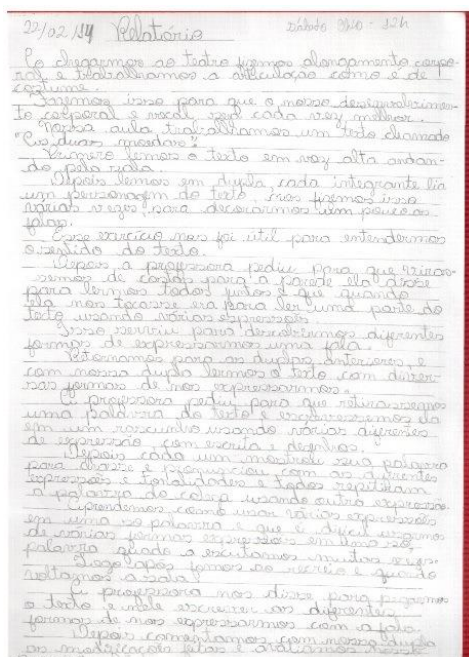 22/02/14 Relatório Sábado 9h30 - 12h
Ao chegarmos ao teatro fizemos alongamento corpo-
ral e trabalhamos a articulação como é de
costume.
Fazemos isso para que o nosso desenvolvimen-
to corporal e vocal seja cada vez melhor.
Nessa aula trabalhamos um texto chamado
"As duas moedas".
Primeiro lemos o texto em voz alta andan-
do pela sala.
Depois lemos em dupla, cada integrante lia
um personagem do texto, nós fizemos isso
várias vezes, para decorarmos um pouco as
falas.
Esse exercício nos foi útil para entendermos
o sentido do texto.
Depois a professora pediu para que virás-
semos de costas para a parede ela disse
para lermos todos juntos e que quando
ela nos tocasse era para ler uma parte do
texto usando várias expressões.
Isso serviu para descobrirmos diferentes
formas de expressarmos uma fala.
Retornamos para as duplas anteriores, e
com nossa dupla lermos o texto com diver-
sas formas de nos expressarmos.
A professora pediu para que retirassemos
uma palavra do texto e escrevessemos ela
em um rascunho usando várias diferentes
de expressão, com escrita e desenhos.
Depois cada um mostrou sua palavra
para classe e pronunciou com as diferentes
expressões e tonalidades e todos repetiam
a palavra do colega usando outra expressão.
Aprendemos como usar várias expressões
em uma só palavra e que é difícil usarmos
de várias formas expressões em uma só
palavra quando a escutamos muitas vezes.
Logo após fomos ao recreio e quando
voltamos a sala
A professora nos disse para pegarmos
o texto e nele escrever as diferentes
formas de nos expressarmos com a fala.
Depois comentamos com nossa dupla
as modificações feitas e